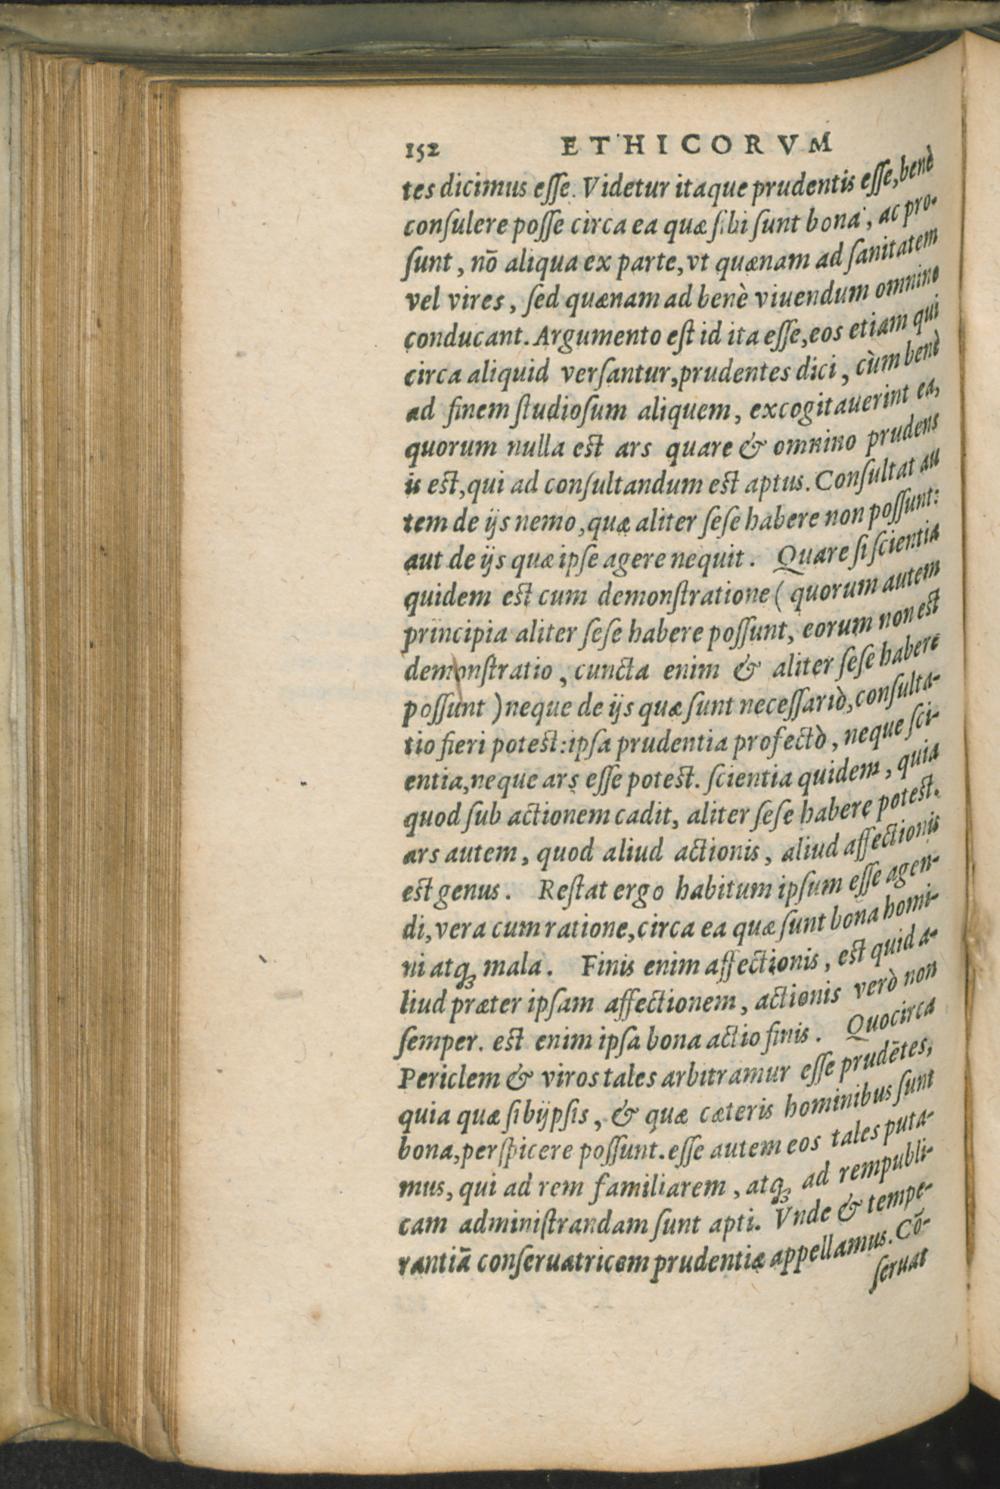 152 ETHICORVM
tes dicimus esse. Videtur itaque prudentis esse, benè
consulere posse circa ea quæ sibi sunt bona, ac pro-
sunt, nō aliqua ex parte, vt quænam ad sanitatem
vel vires, sed quænam ad benè viuendum omnino
conducant. Argumento est id ita esse, eos etiam qui
circa aliquid versantur, prudentes dici, cùm benè
ad finem studiosum aliquem, excogitauerint ea,
quorum nulla est ars quare & omnino prudens
is est, qui ad consultandum est aptus. Consultat au
tem de ijs nemo, quæ aliter sese habere non possunt:
aut de ijs quæ ipse agere nequit. Quare si scientia
quidem est cum demonstratione ( quorum autem
principia aliter sese habere possunt, eorum non est
demonstratio, cuncta enim & aliter sese habere
possunt ) neque de ijs quæ sunt necessariò, consulta-
tio fieri potest: ipsa prudentia profectò, neque sci-
entia, neque ars esse potest. scientia quidem, quia
quod sub actionem cadit, aliter sese habere potest.
ars autem, quod aliud actionis, aliud affectionis
est genus. Restat ergo habitum ipsum esse agen-
di, vera cum ratione, circa ea quæ sunt bona homi-
ni atq; mala. Finis enim affectionis, est quid a-
liud præter ipsam affectionem, actionis verò non
semper. est enim ipsa bona actio finis. Quocirca
Periclem & viros tales arbitramur esse prudētes,
quia quæ sibijpsis, & quæ cæteris hominibus sunt
bona, perspicere possunt. esse autem eos tales puta-
mus, qui ad rem familiarem, atq; ad rempubli-
cam administrandam sunt apti. Vnde & tempe-
rantiā conseruatricem prudentiæ appellamus. Cō-
seruat